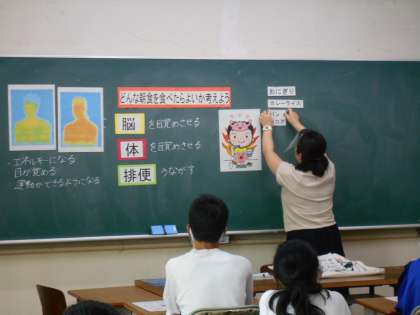 どんな朝食を食べたらよいか考えよう
脳を目覚めさせる
体を目覚めさせる
排便うながす
・エネルギーになる
目が覚める
運動ができるようになる
おにぎり
カレーライス
パン